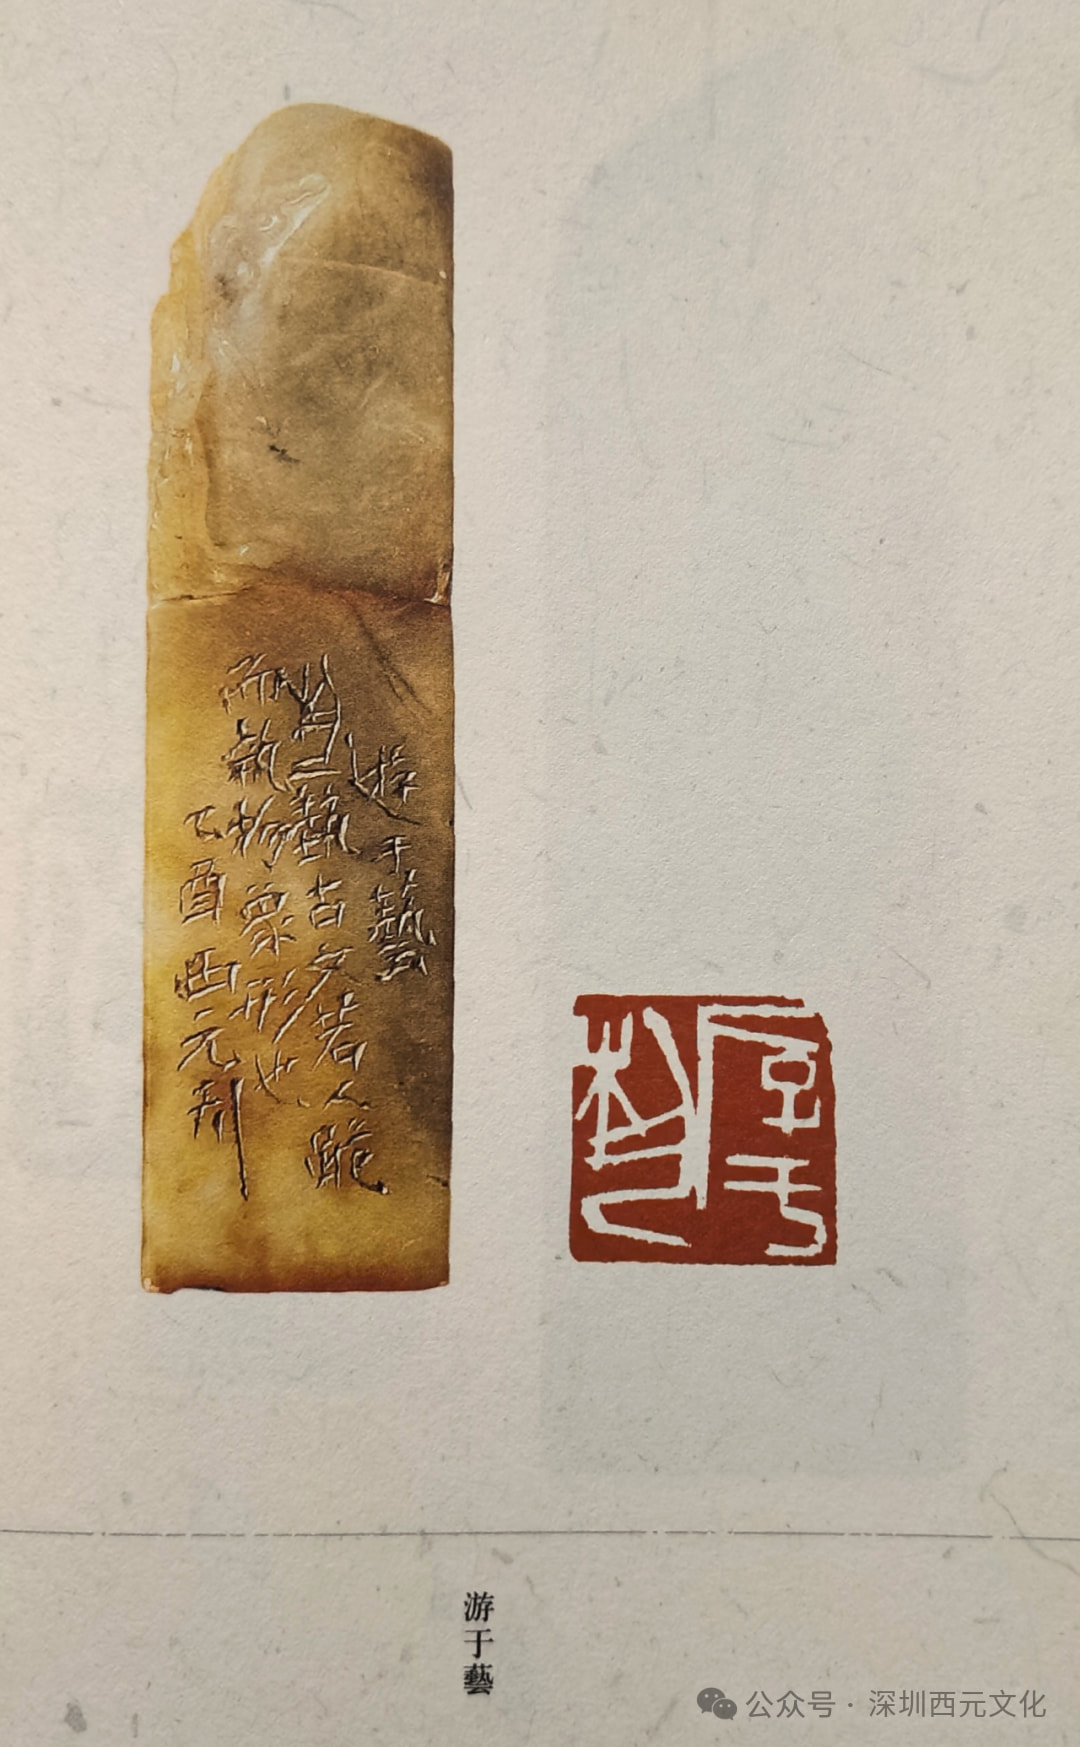 遊于藝
古文若人跪
而執物象形也
乙酉西元
游于藝
游于藝
公众号 · 深圳西元文化